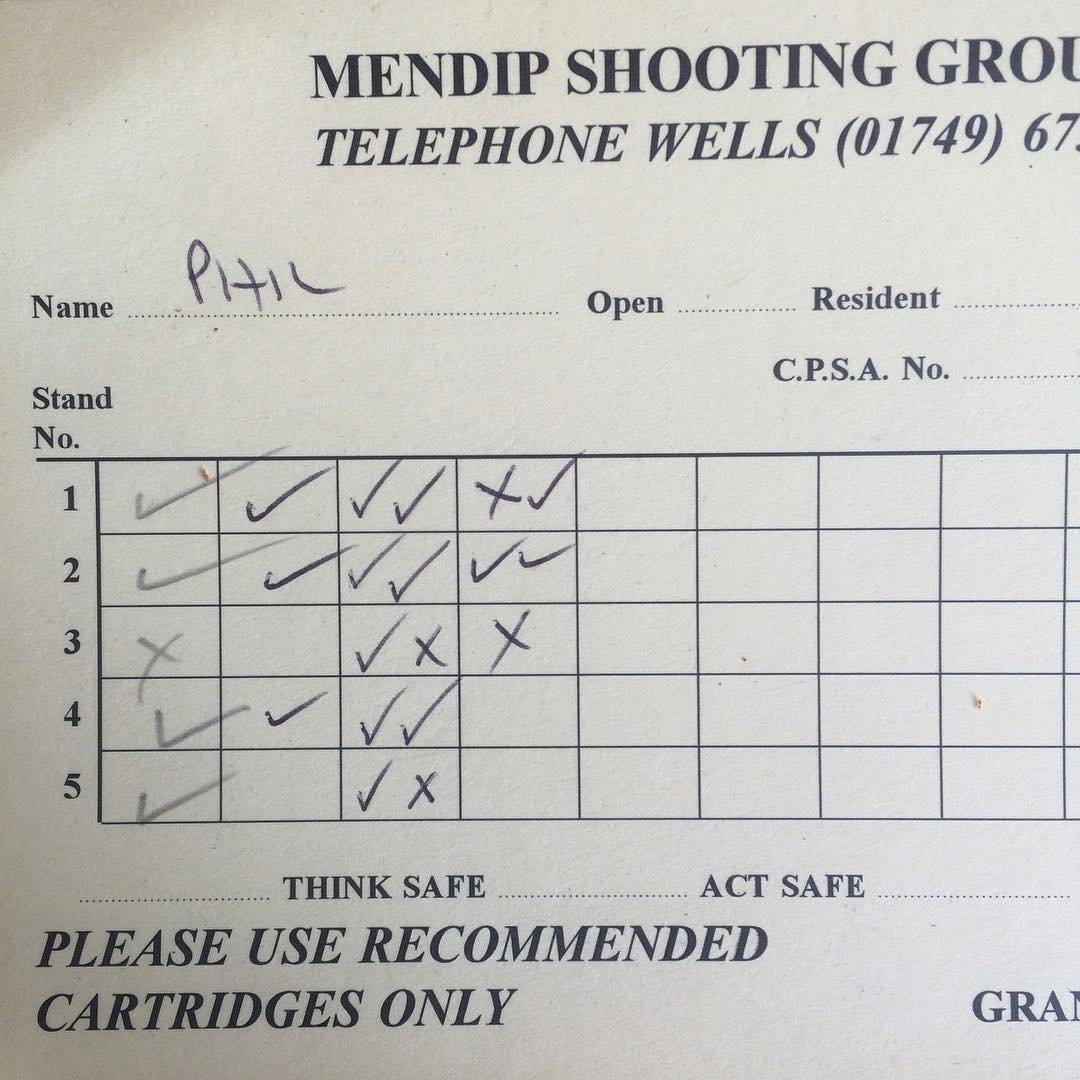 MENDIP SHOOTING GROU
TELEPHONE WELLS (01749) 67
Name PHIL Open Resident
C.P.S.A. No.
Stand
No.
1 ✓ ✓ ✓✓ X✓
2 ✓ ✓ ✓✓ ✓✓
3 X ✓X X
4 ✓ ✓ ✓✓
5 ✓ ✓X
THINK SAFE ACT SAFE
PLEASE USE RECOMMENDED
CARTRIDGES ONLY
GRAN